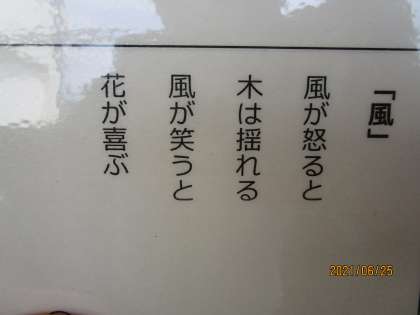 「風」
風が怒ると
木は揺れる
風が笑うと
花が喜ぶ
2021/06/25